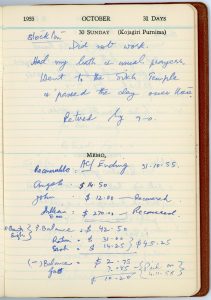 1955 OCTOBER 31 DAYS
30 SUNDAY (Kojagiri Purnima)
Stockton
Did not work.
Had my bath & usual prayers.
Went to the Sikh Temple
& passed the day over there.
Retired by 9-0.
MEMO.
A/c Ending 31-10-55.
Receivable:
$ 10.50
John $ 12.00 — Received
$ 270.00 — Received.
Balance = $ 42.50
$ 31.00
$ 14.25 } $ 45.25
(-) Balance = $ 2.75
7.45
$ 10.20